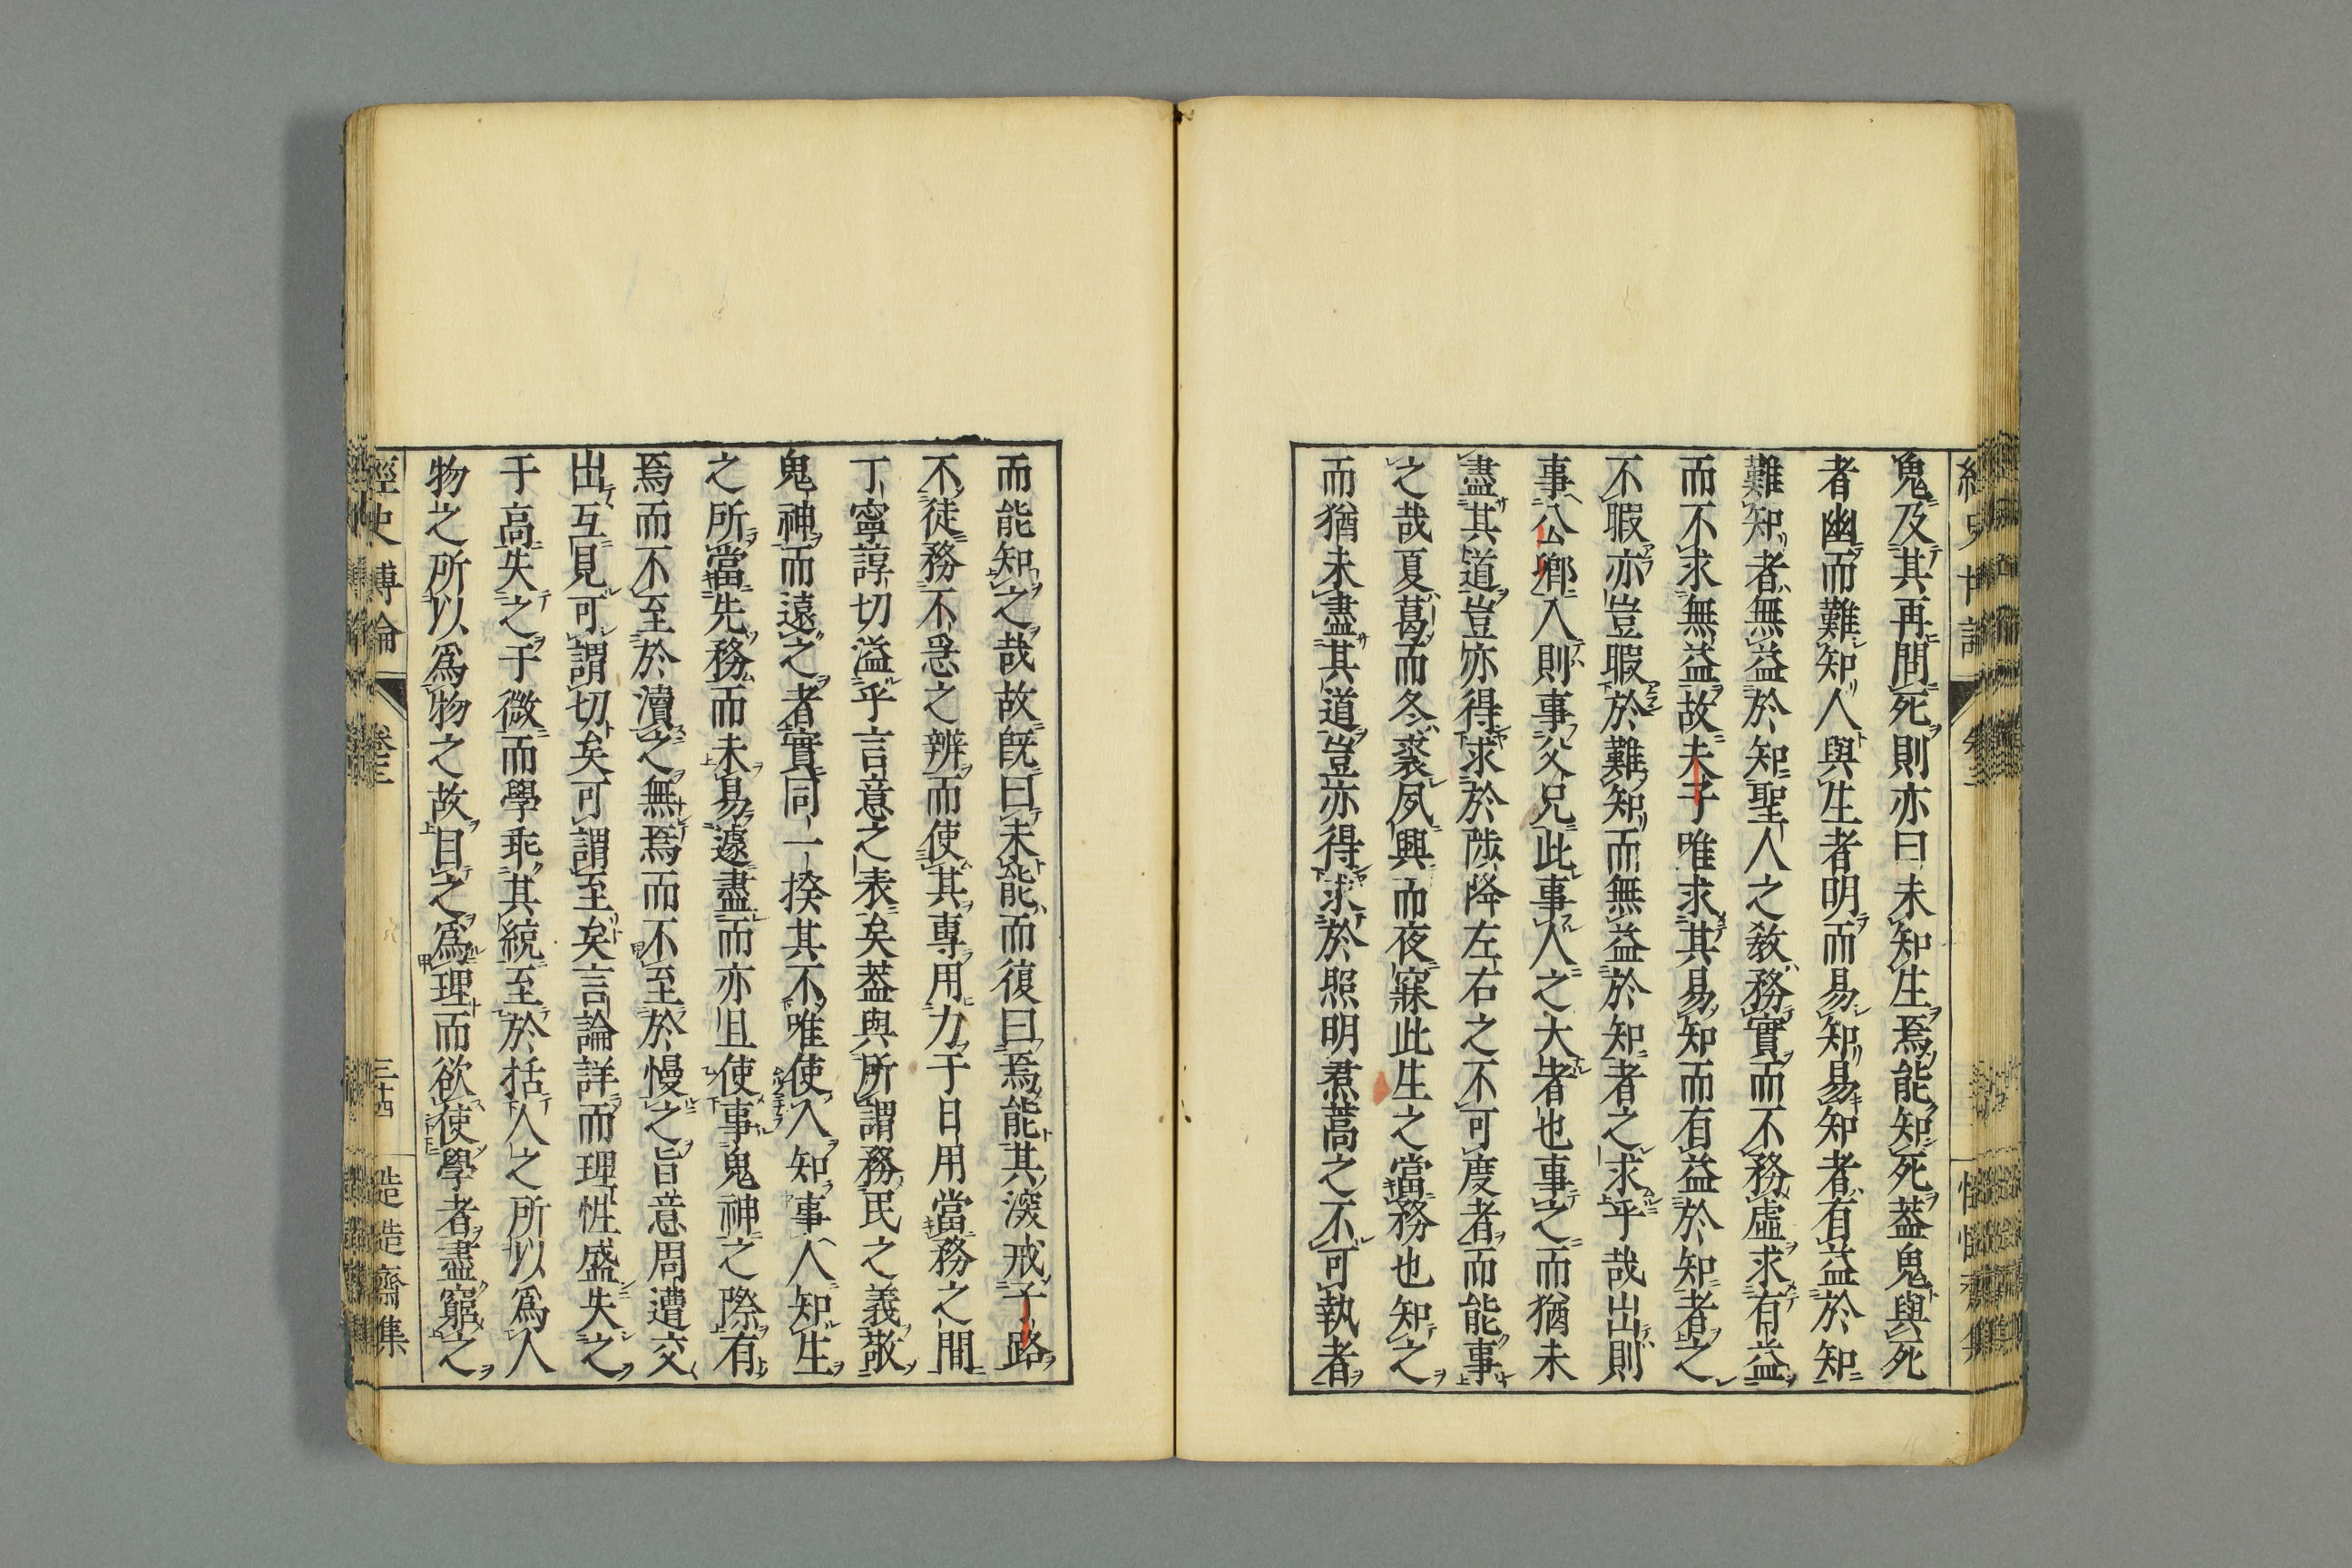 鬼及其再問死則亦曰未知生焉能知死葢鬼與死
者幽而難知人與生者明而易知易知者有益於知
難知者無益於知聖人之敎務實而不務虛求有益
而不求無益故夫子唯求其易知而有益於知者之
不暇亦豈暇於難知而無益於知者之求乎哉出則
事公卿入則事父兄此事人之大者也事之而猶未
盡其道豈亦得求於陟降左右之不可度者而能事
之哉夏葛而冬裘夙興而夜寐此生之當務也知之
而猶未盡其道豈亦得求於照明焄蒿之不可執者
而能知之哉故旣曰未能而復曰焉能其深戒子路
不徒務不急之辨而使其專用力于日用當務之間
丁寧諄切溢乎言意之表矣葢與所謂務民之義敬
鬼神而遠之者實同一揆其不唯使人知事人知生
之所當先務而未易遽盡而亦且使事鬼神之際有
焉而不至於瀆之無焉而不至於慢之旨意周遭交
出互見可謂切矣可謂至矣言論詳而理性盛失之
于高失之于微而學乖其統至於括人之所以爲人
物之所以爲物之故目之爲理而欲使學者盡窮之
經史博論
卷三
三十四
慥慥齋集